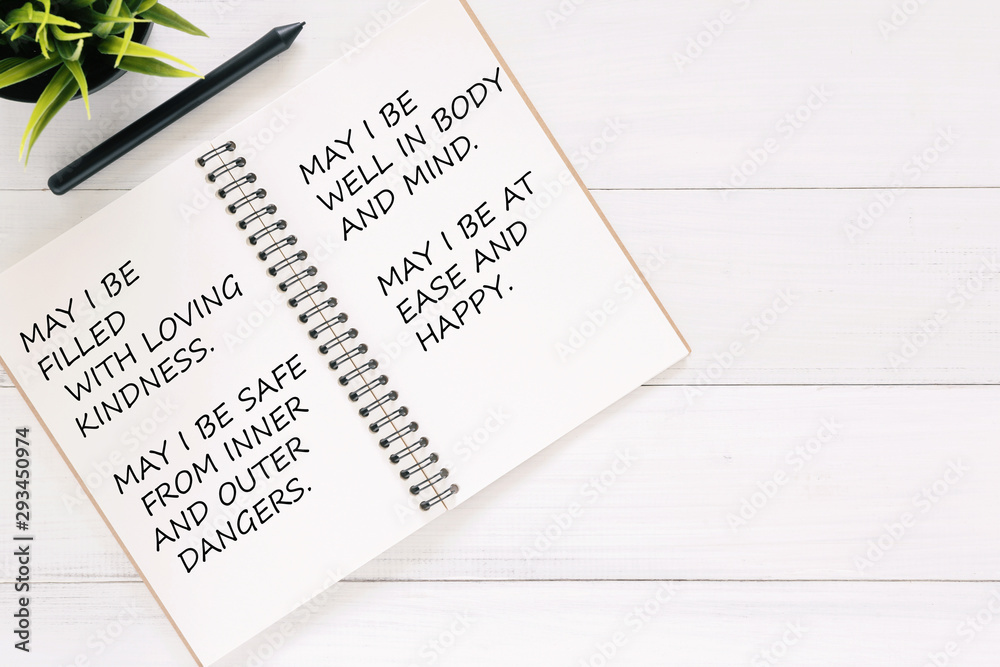 MAY I BE
FILLED
WITH LOVING
KINDNESS.
MAY I BE SAFE
FROM INNER
AND OUTER
DANGERS.
MAY I BE
WELL IN BODY
AND MIND.
MAY I BE AT
EASE AND
HAPPY.
Adobe Stock | #293450974